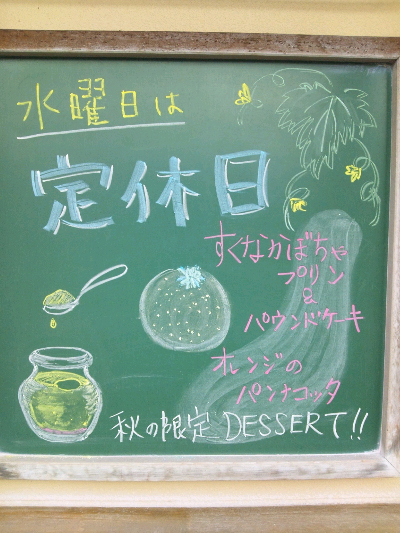 水曜日は
定休日
すくなかぼちゃ
プリン
&
パウンドケーキ
オレンジの
パンナコッタ
秋の限定 DESSERT!!